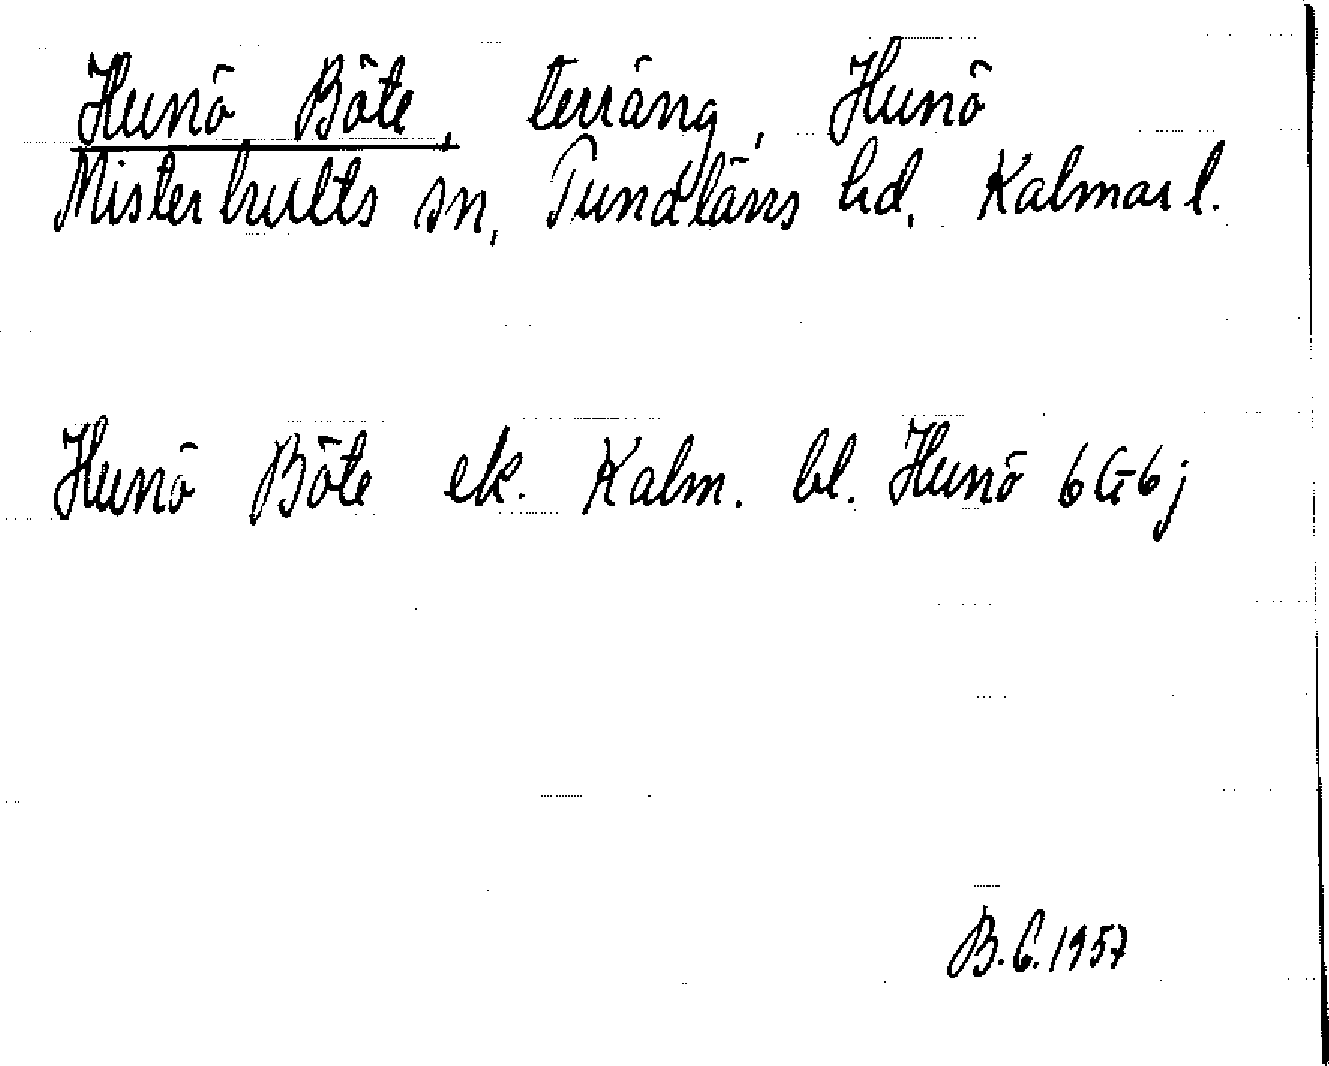 Hunö Böte, terräng, Hunö
Misterhults sn, Tundläns hd, Kalmar l.
Hunö Böte ek. Kalm. bl. Hunö 6G6j
B.C. 1957